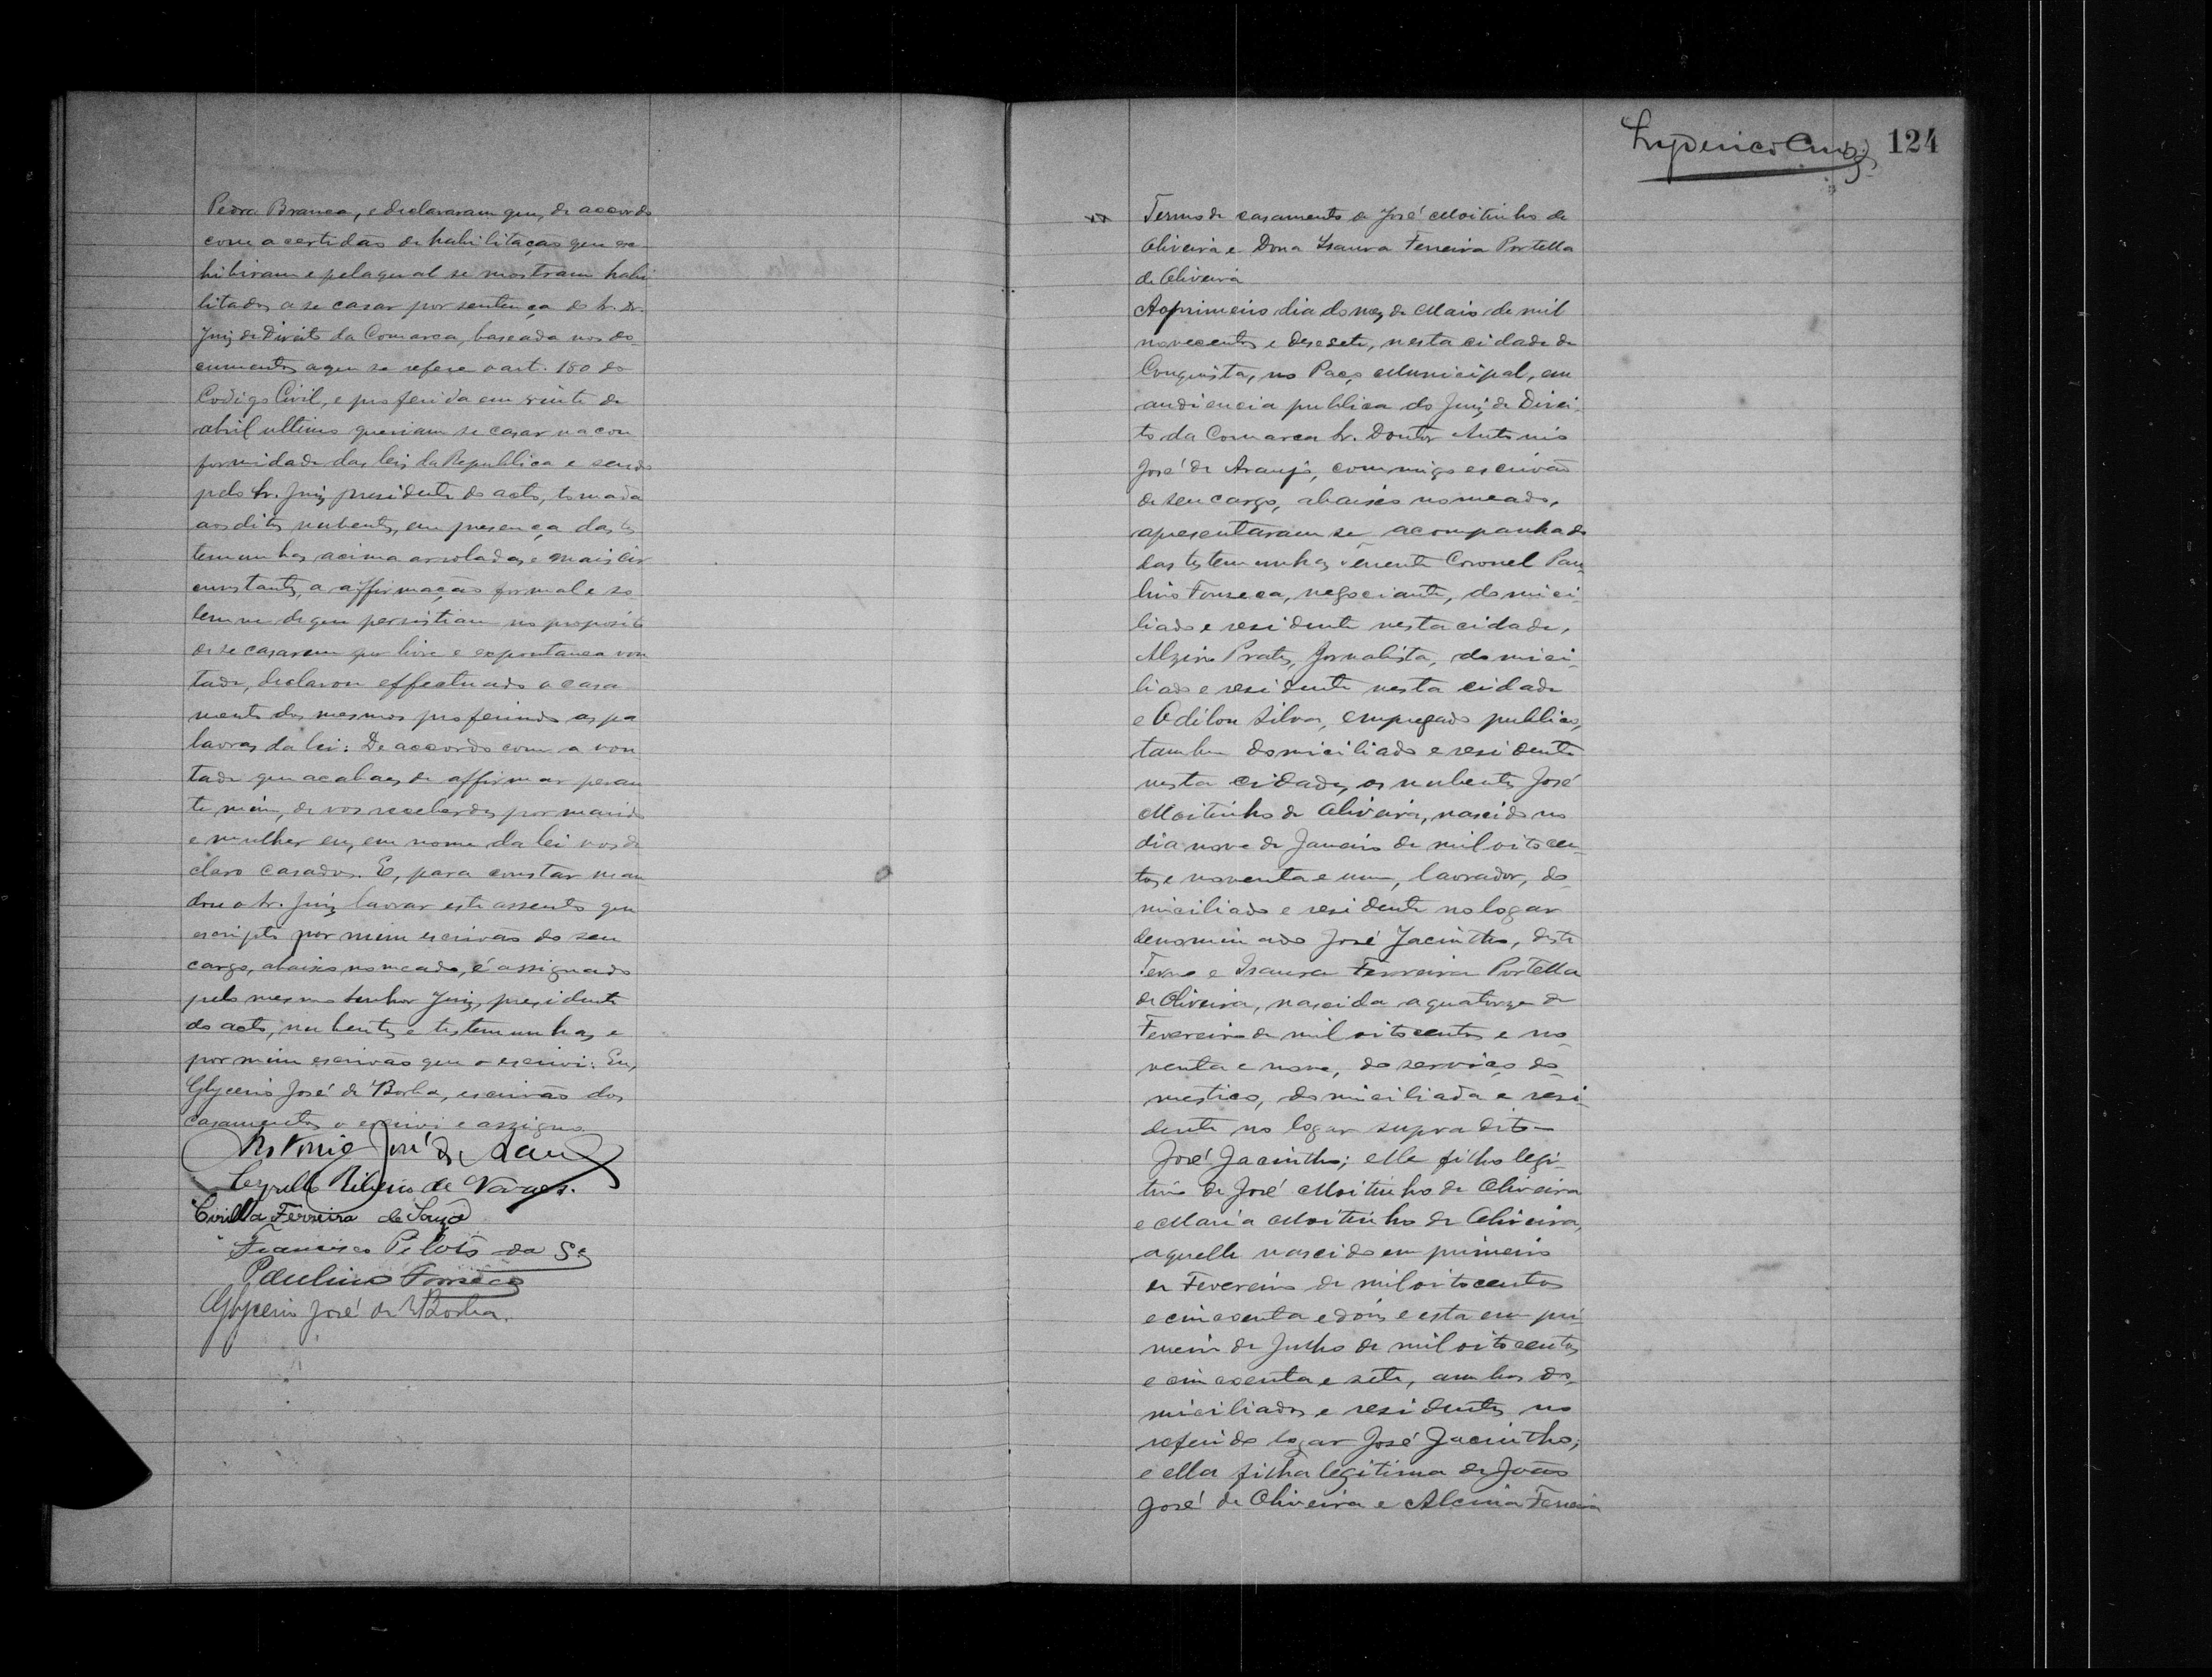 Pedra Branca, e declararam que, de accordo
com a certidão de habilitação que ex-
hibiram e pela qual se mostram habi
litados a se casar por sentença do Sr. Dr.
Juiz de Direito da Comarca, baseada nos do-
cumentos a que se refere o art. 180 do
Codigo Civil, e proferida em vinte de
abril ultimo queriam se casar na con
formidade das leis da Republica e sendo
pelo Sr. Juiz presidente do acto, tomada
aos ditos nubentes, em presença das tes
temunhas acima arroladas e mais cir
cunstantes, a affirmação formal e so
lemne de que persistiam no proposito
de se casarem por livre e expontanea von
tade, declarou effectuado o casa
mento dos mesmos proferindo as pa
lavras da lei: De accordo com a von
tade que acabaes de affirmar peran
te mim, de vos receberdes por marido
e mulher eu, em nome da lei vos de
claro casados. E, para constar man
dou o Sr. Juiz lavrar este assento que
escripto por mim escrivão do seu
cargo, abaixo nomeado, é assignado
pelo mesmo Senhor Juiz, presidente
do acto, nubentes e testemunhas e
por mim escrivão que o escrevi: Eu,
Glycerio José de Borba, escrivão dos
casamentos o escrevi e assigno
Antonio José de Araujo
Cyrillo Ribeiro de Novaes.
Cirilla Ferreira de Souza
Francisco Peloto da Sa
Paulino Fonseca
Glycerio José de Borba.
124
Termo de casamento de José Moitinho de
Oliveira e Dona Isaura Ferreira Portella
de Oliveira
Ao primeiro dia do mez de Maio de mil
novecentos e desesete, nesta cidade de
Conquista, no Paço Municipal, em
audiencia publica do Juiz de Direi-
to da Comarca Sr. Doutor Antonio
José de Araujo, commigo escrivão
de seu cargo, abaixo nomeado,
apresentaram se acompanhado
das testemunhas Tenente Coronel Pau
lino Fonseca, negociante, domici-
liado e residente nesta cidade,
Alziro Prates, Jornalista, domici-
liado e residente nesta cidade
e Odilon Silva, empregado publico,
tambem domiciliado e residente
nesta cidade, os nubentes José
Moitinho de Oliveira, nascido no
dia nove de Janeiro de mil oitocen-
tos e noventa e um, lavrador, do-
miciliado e residente no logar
denominado José Jacintho, deste
Termo e Isaura Ferreira Portella
de Oliveira, nascida a quatorze de
Fevereiro de mil oitocentos e no-
venta e nove, do serviço do-
mestico, domiciliada e resi-
dente no logar supra dito—
José Jacintho; elle filho legi-
timo de José Moitinho de Oliveira
e Maria Moitinho de Oliveira,
aquelle nascido em primeiro
de Fevereiro de mil oitocentos
e cincoenta e dois e esta em pri-
meiro de Julho de mil oitocentos
e cincoenta e sete, ambos do-
miciliados e residentes no
referido logar José Jacintho;
e ella filha legitima de João
José de Oliveira e Alcina Ferreira